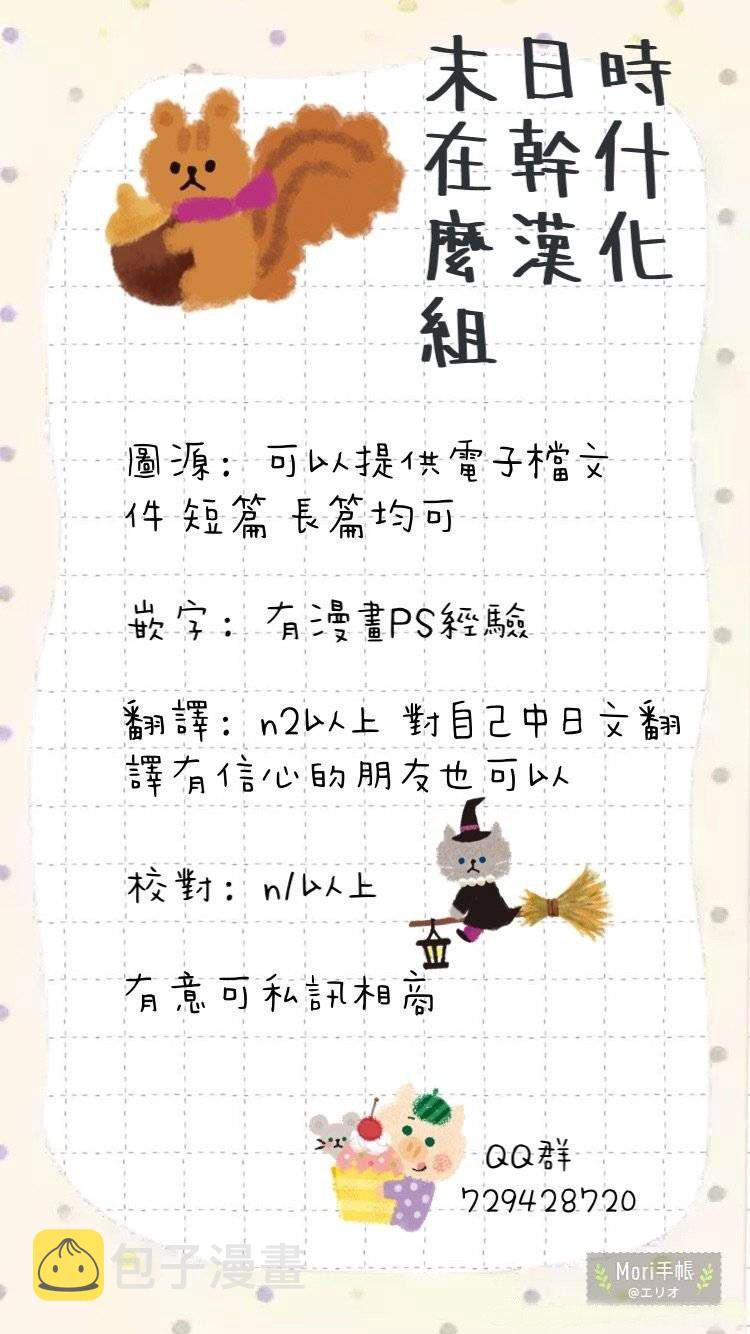 末日時
在幹什
麼漢化
組
圖源：可以提供電子檔文
件 短篇 長篇均可
嵌字：有漫畫PS經驗
翻譯：n2以上 對自己中日文翻
譯有信心的朋友也可以
校對：n1以上
有意可私訊相商
QQ群
729428720
包子漫畫
Mori手帳
@エリオ